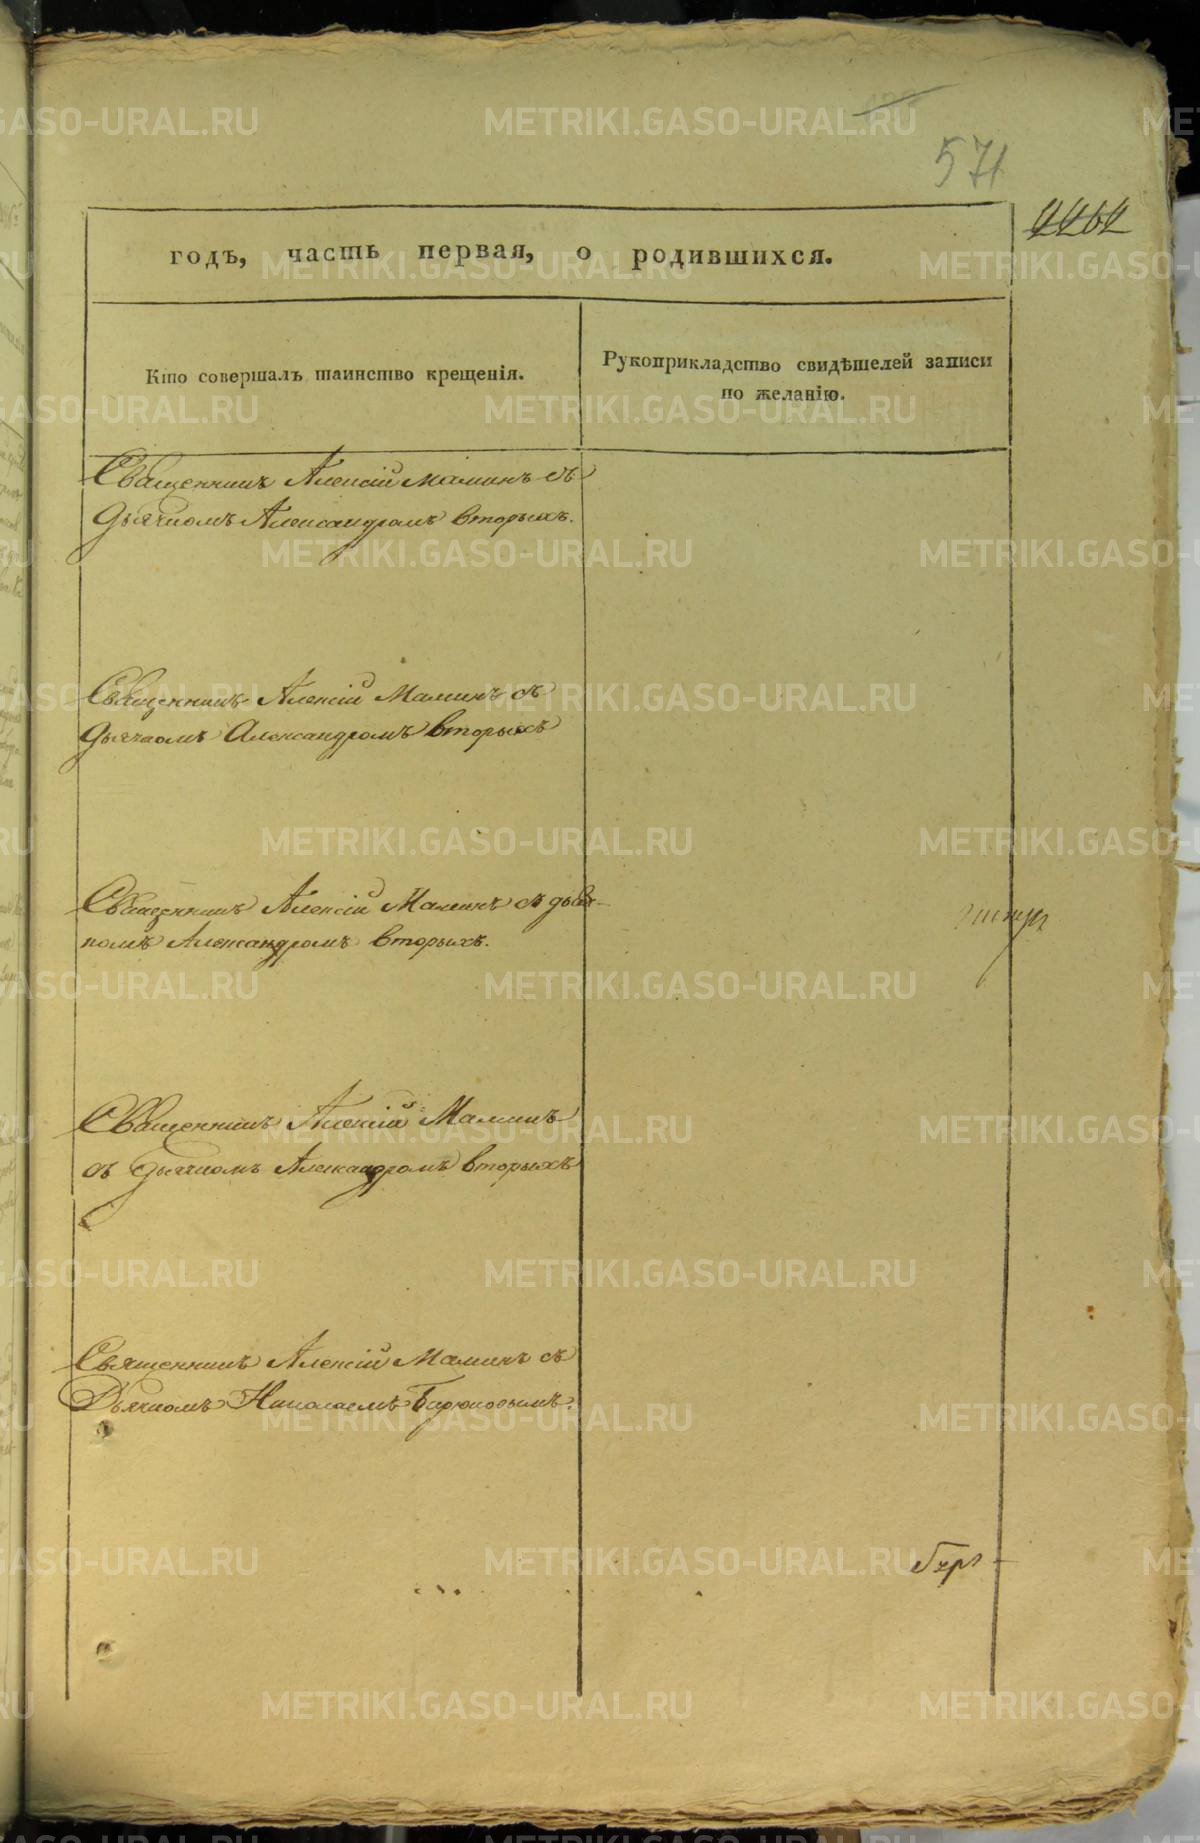 571
годъ, часть первая, о родившихся.
Кто совершалъ таинство крещенія.
Рукоприкладство свидѣтелей записи
по желанію.
Священникъ Алексій Маминъ съ
Дьячкомъ Александромъ Вторыхъ.
Священникъ Алексій Маминъ съ
Дьячкомъ Александромъ Вторыхъ
Священникъ Алексій Маминъ съ дьяч-
комъ Александромъ Вторыхъ.
Священникъ Алексій Маминъ
съ Дьячкомъ Александромъ Вторыхъ
Священникъ Алексій Маминъ съ
Дьячкомъ Николаемъ Бирюковымъ.
METRIKI.GASO-URAL.RU